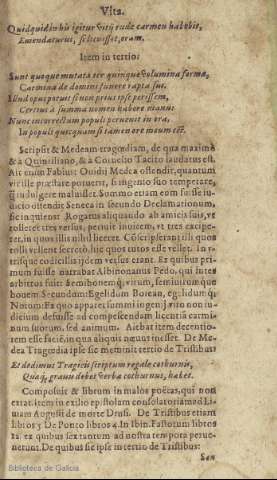 Vita.
Quidquid in his igitur vitij rude carmen habebit,
Emendaturus, si licuisset, eram.
Item in tertio:
Sunt quoque mutatæ ter quinque volumina formæ,
Carmina de domini funere rapta sui.
Illud opus potuit si non prius ipse perissem,
Certius à summa nomen habere manu:
Nunc incorrectum populi peruenit in ora,
In populi quicquam si tamen ore meum est.
Scripsit & Medeam tragœdiam, de qua maximè
& a Quintiliano, & a Cornelio Tacito laudatus est.
Ait enim Fabius: Ouidij Medea ostendit, quantum
vir ille præstare potuerit, si ingenio suo temperare,
quàm indulgere maluisset. Summo etiam eum fuisse in-
dicio ostendit Seneca in secundo Declamationum,
sic inquiens: Rogatus aliquando ab amicis suis, vt
tolleret tres versus, petiuit inuicem, vt tres excipe-
ret, in quos illis nihil liceret. Cōscripserunt illi quos
tolli vellent secretò, hic quos tutos esse vellet. In v-
trisque codicillis ijdem versus erant. Ex quibus pri-
mum fuisse narrabat Albinouanus Pedo, qui inter
arbitros fuit: Semibouemq; virum, semiuirumque
bouem Secundum: Egelidum Borean, egelidumq;
Notum: Ex quo apparet summi ingenij viro non iu-
dicium defuisse ad compescendam licentia carmi-
num suorum, sed animum. Aiebat item decentio-
rem esse faciē, in qua aliquis næuus inesset. De Me-
dea Tragœdia ipse sic meminit tertio de Tristibus
Et dedimus Tragicis scriptum regale cothurnis,
Quæq; grauis debet verba cothurnus, habet.
Composuit & librum in malos poëtas, qui non
extat. Item in exilio epistolam consolatoriā ad Li-
uiam Augusti de morte Drusi. De Tristibus etiam
libros 5 De Ponto libros 4. In Ibin. Fastorum libros
12. ex quibus sex tantum ad nostra tempora perue-
nerunt. De quibus sic ipse in tertio de Tristibus:
Sex
Biblioteca de Galicia